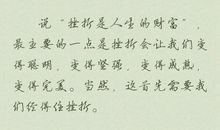 说“挫折是人生的财富”，
最主要的一点是挫折会让我们变
得聪明，变得坚强，变得成熟，
变得完美。当然，这首先需要我
们经得住挫折。